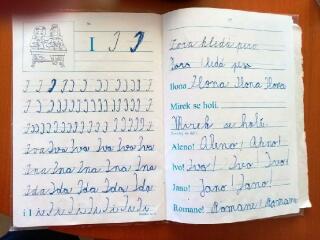 I I I
I I I I I I I I I I I I I
I I I I I I I I I I I I I
Iva Iva Iva Iva Iva Iva
Ina Ina Ina Ina Ina
Ida Ida Ida Ida Ida
i I
Zora hledá pero
Zora hledá pero
Ilona Ilona Ilona Ilona
Mirek se holí.
Mirek se holí.
Aleno! Aleno! Aleno!
Ivo! Ivo! Ivo! Ivo!
Jano! Jano! Jano!
Romane! Romane! Romane!